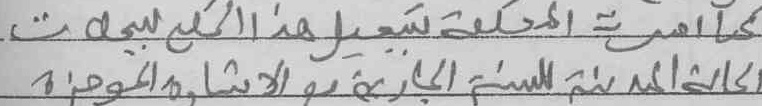 كما امرت المحكمة بتسجيل هذا الحكم لسجلات
الحالة المدنية للسنة الجارية مع الاشارة الموجزة